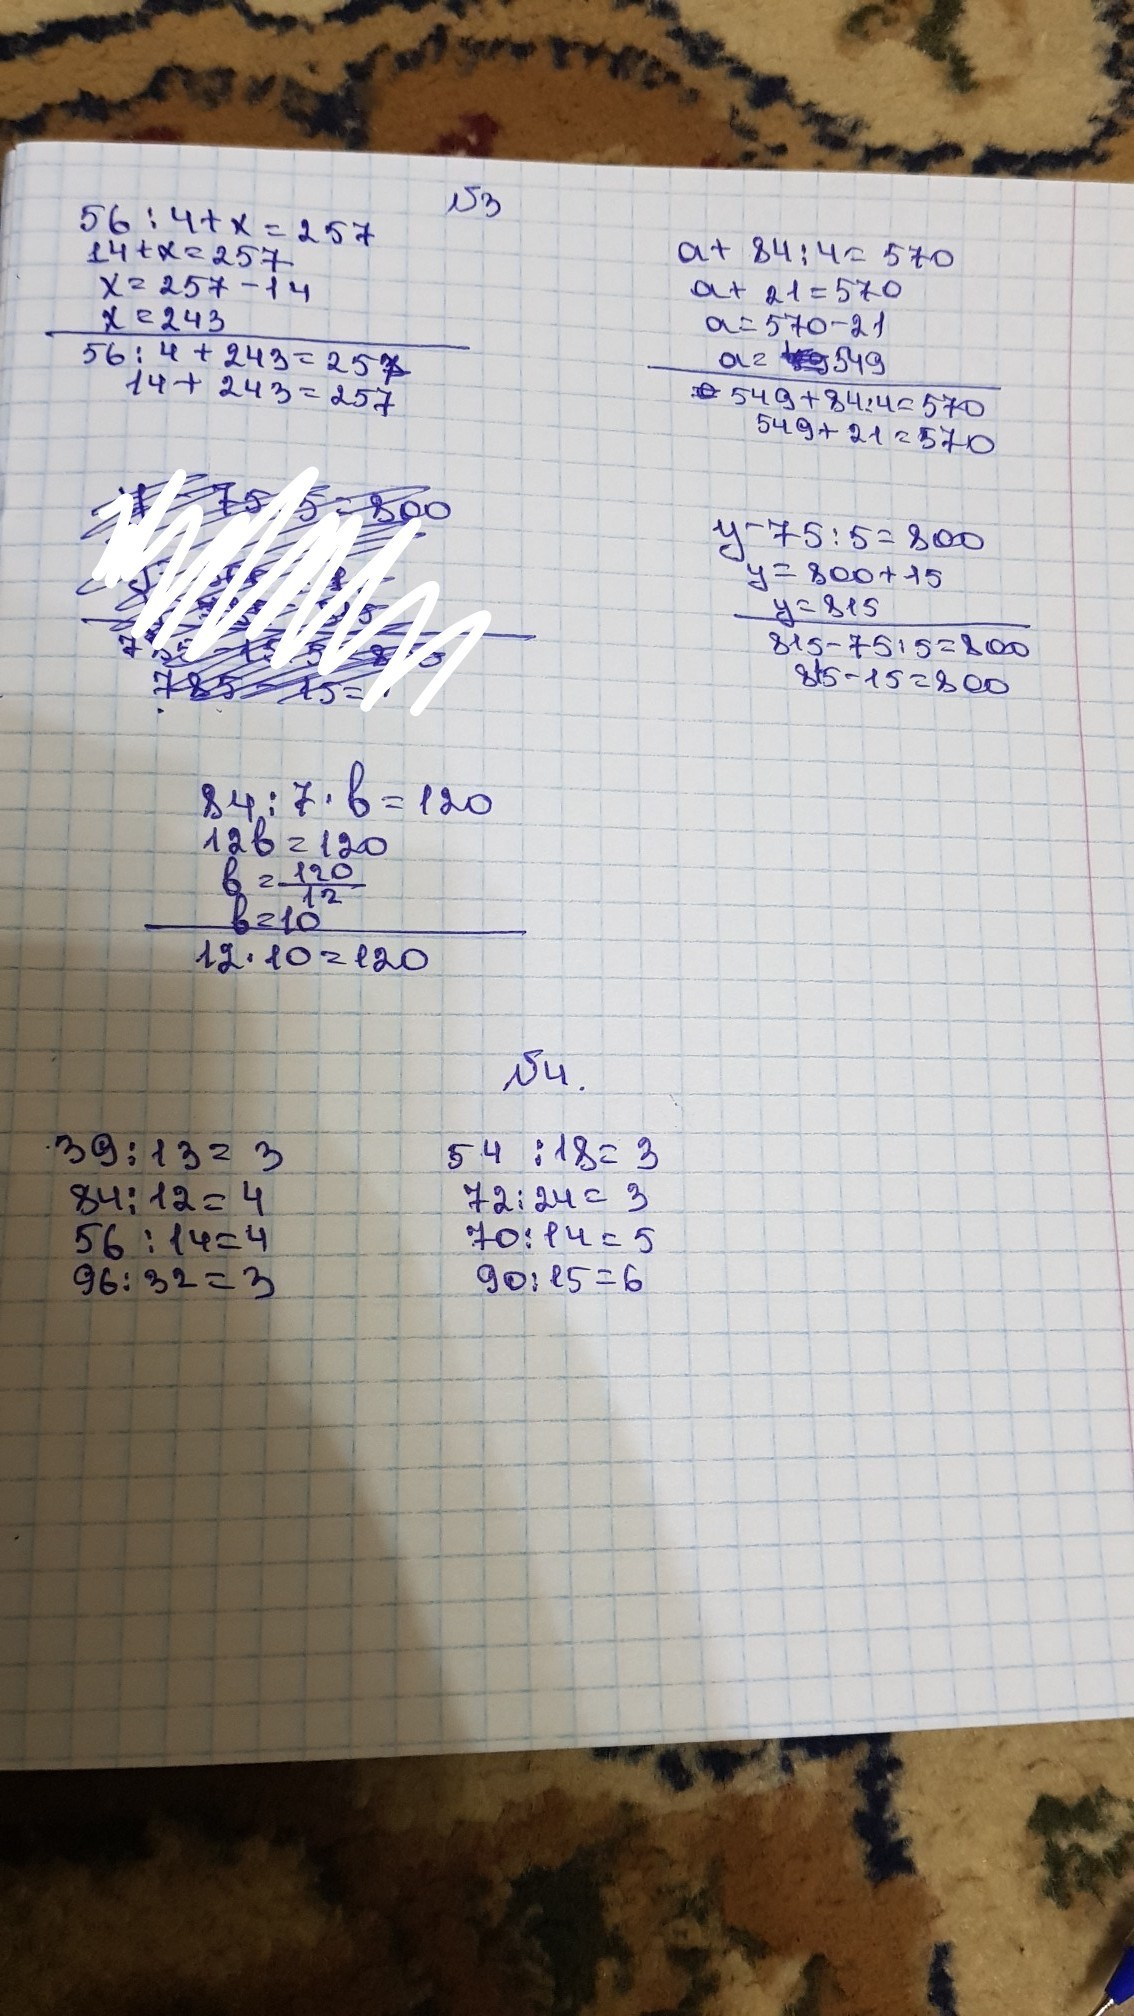 №3
56 : 4 + x = 257
14 + x = 257
x = 257 - 14
x = 243
56 : 4 + 243 = 257
14 + 243 = 257
a + 84 : 4 = 570
a + 21 = 570
a = 570 - 21
a = 549
549 + 84 : 4 = 570
549 + 21 = 570
75 5 = 800
785 - 15 =
y - 75 : 5 = 800
y = 800 + 15
y = 815
815 - 75 : 5 = 800
815 - 15 = 800
84 : 7 · b = 120
12b = 120
b = 120/12
b = 10
12 · 10 = 120
№4.
39 : 13 = 3
84 : 12 = 4
56 : 14 = 4
96 : 32 = 3
54 : 18 = 3
72 : 24 = 3
70 : 14 = 5
90 : 15 = 6